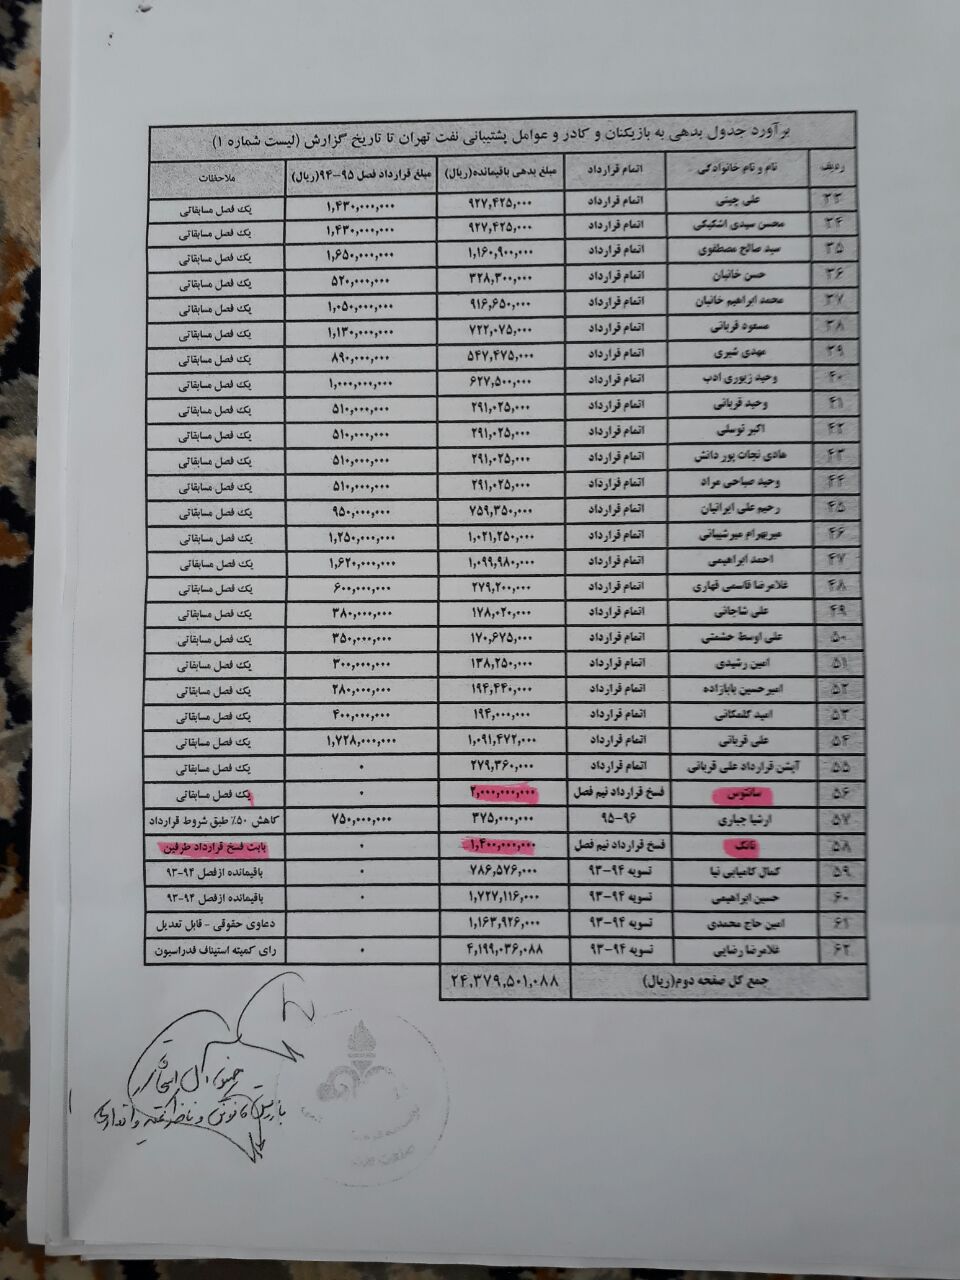 برآورد جدول بدهی به بازیکنان و کادر و عوامل پشتیبانی نفت تهران تا تاریخ گزارش (لیست شماره ۱)
ردیف نام و نام خانوادگی اتمام قرارداد مبلغ بدهی باقیمانده(ریال) مبلغ قرارداد فصل ۹۵-۹۴(ریال) ملاحظات
۳۳ علی چینی اتمام قرارداد ۹۲۷,۴۲۵,۰۰۰ ۱,۴۳۰,۰۰۰,۰۰۰ یک فصل مسابقاتی
۳۴ محسن سیدی اشکیکی اتمام قرارداد ۹۲۷,۴۲۵,۰۰۰ ۱,۴۳۰,۰۰۰,۰۰۰ یک فصل مسابقاتی
۳۵ سید صالح مصطفوی اتمام قرارداد ۱,۱۶۰,۹۰۰,۰۰۰ ۱,۶۵۰,۰۰۰,۰۰۰ یک فصل مسابقاتی
۳۶ حسن خانیان اتمام قرارداد ۳۲۸,۳۰۰,۰۰۰ ۵۲۰,۰۰۰,۰۰۰ یک فصل مسابقاتی
۳۷ محمد ابراهیم خانیان اتمام قرارداد ۹۱۶,۶۵۰,۰۰۰ ۱,۰۵۰,۰۰۰,۰۰۰ یک فصل مسابقاتی
۳۸ مسعود قربانی اتمام قرارداد ۷۲۲,۰۷۵,۰۰۰ ۱,۱۳۰,۰۰۰,۰۰۰ یک فصل مسابقاتی
۳۹ مهدی شیری اتمام قرارداد ۵۴۷,۴۷۵,۰۰۰ ۸۹۰,۰۰۰,۰۰۰ یک فصل مسابقاتی
۴۰ وحید زیوری ادب اتمام قرارداد ۶۲۷,۵۰۰,۰۰۰ ۱,۰۰۰,۰۰۰,۰۰۰ یک فصل مسابقاتی
۴۱ وحید قربانی اتمام قرارداد ۲۹۱,۰۲۵,۰۰۰ ۵۱۰,۰۰۰,۰۰۰ یک فصل مسابقاتی
۴۲ اکبر توسلی اتمام قرارداد ۲۹۱,۰۲۵,۰۰۰ ۵۱۰,۰۰۰,۰۰۰ یک فصل مسابقاتی
۴۳ هادی نجات پور دانش اتمام قرارداد ۲۹۱,۰۲۵,۰۰۰ ۵۱۰,۰۰۰,۰۰۰ یک فصل مسابقاتی
۴۴ وحید صباحی مراد اتمام قرارداد ۲۹۱,۰۲۵,۰۰۰ ۵۱۰,۰۰۰,۰۰۰ یک فصل مسابقاتی
۴۵ رحیم علی ایرانیان اتمام قرارداد ۷۵۹,۳۵۰,۰۰۰ ۹۵۰,۰۰۰,۰۰۰ یک فصل مسابقاتی
۴۶ میربهرام میرشیبانی اتمام قرارداد ۱,۰۲۱,۲۵۰,۰۰۰ ۱,۲۵۰,۰۰۰,۰۰۰ یک فصل مسابقاتی
۴۷ احمد ابراهیمی اتمام قرارداد ۱,۰۹۹,۹۸۰,۰۰۰ ۱,۶۲۰,۰۰۰,۰۰۰ یک فصل مسابقاتی
۴۸ غلامرضا قاسمی قهاری اتمام قرارداد ۲۷۹,۲۰۰,۰۰۰ ۶۰۰,۰۰۰,۰۰۰ یک فصل مسابقاتی
۴۹ علی شاجانی اتمام قرارداد ۱۷۸,۰۲۰,۰۰۰ ۳۸۰,۰۰۰,۰۰۰ یک فصل مسابقاتی
۵۰ علی اوسط حشمتی اتمام قرارداد ۱۷۰,۶۷۵,۰۰۰ ۳۵۰,۰۰۰,۰۰۰ یک فصل مسابقاتی
۵۱ امین رشیدی اتمام قرارداد ۱۳۸,۲۵۰,۰۰۰ ۳۰۰,۰۰۰,۰۰۰ یک فصل مسابقاتی
۵۲ امیرحسین بابازاده اتمام قرارداد ۱۹۴,۴۴۰,۰۰۰ ۲۸۰,۰۰۰,۰۰۰ یک فصل مسابقاتی
۵۳ امید گلمکانی اتمام قرارداد ۱۹۴,۰۰۰,۰۰۰ ۴۰۰,۰۰۰,۰۰۰ یک فصل مسابقاتی
۵۴ علی قربانی اتمام قرارداد ۱,۰۹۱,۴۷۲,۰۰۰ ۱,۷۲۸,۰۰۰,۰۰۰ یک فصل مسابقاتی
۵۵ آپشن قرارداد علی قربانی اتمام قرارداد ۲۷۹,۳۶۰,۰۰۰ ۰ یک فصل مسابقاتی
۵۶ سانتوس فسخ قرارداد نیم فصل ۲,۰۰۰,۰۰۰,۰۰۰ ۰ یک فصل مسابقاتی
۵۷ ارشیا جباری ۹۵-۹۶ ۳۷۵,۰۰۰,۰۰۰ ۷۵۰,۰۰۰,۰۰۰ کاهش ۵۰٪ طبق شروط قرارداد
۵۸ تانک فسخ قرارداد نیم فصل ۱,۴۰۰,۰۰۰,۰۰۰ ۰ بابت فسخ قرارداد طرفین
۵۹ کمال کامیابی نیا تسویه ۹۴-۹۳ ۷۸۶,۵۷۶,۰۰۰ ۰ باقیمانده ازفصل ۹۴-۹۳
۶۰ حسین ابراهیمی تسویه ۹۴-۹۳ ۱,۷۲۷,۱۱۶,۰۰۰ ۰ باقیمانده ازفصل ۹۴-۹۳
۶۱ امین حاج محمدی تسویه ۹۴-۹۳ ۱,۱۶۳,۹۲۶,۰۰۰ دعاوی حقوقی - قابل تعدیل
۶۲ غلامرضا رضایی تسویه ۹۴-۹۳ ۴,۱۹۹,۰۳۶,۰۸۸ ۰ رای کمیته استیناف فدراسیون
جمع کل صفحه دوم(ریال) ۲۴,۳۷۹,۵۰۱,۰۸۸
بازرس قانونی و ناظر